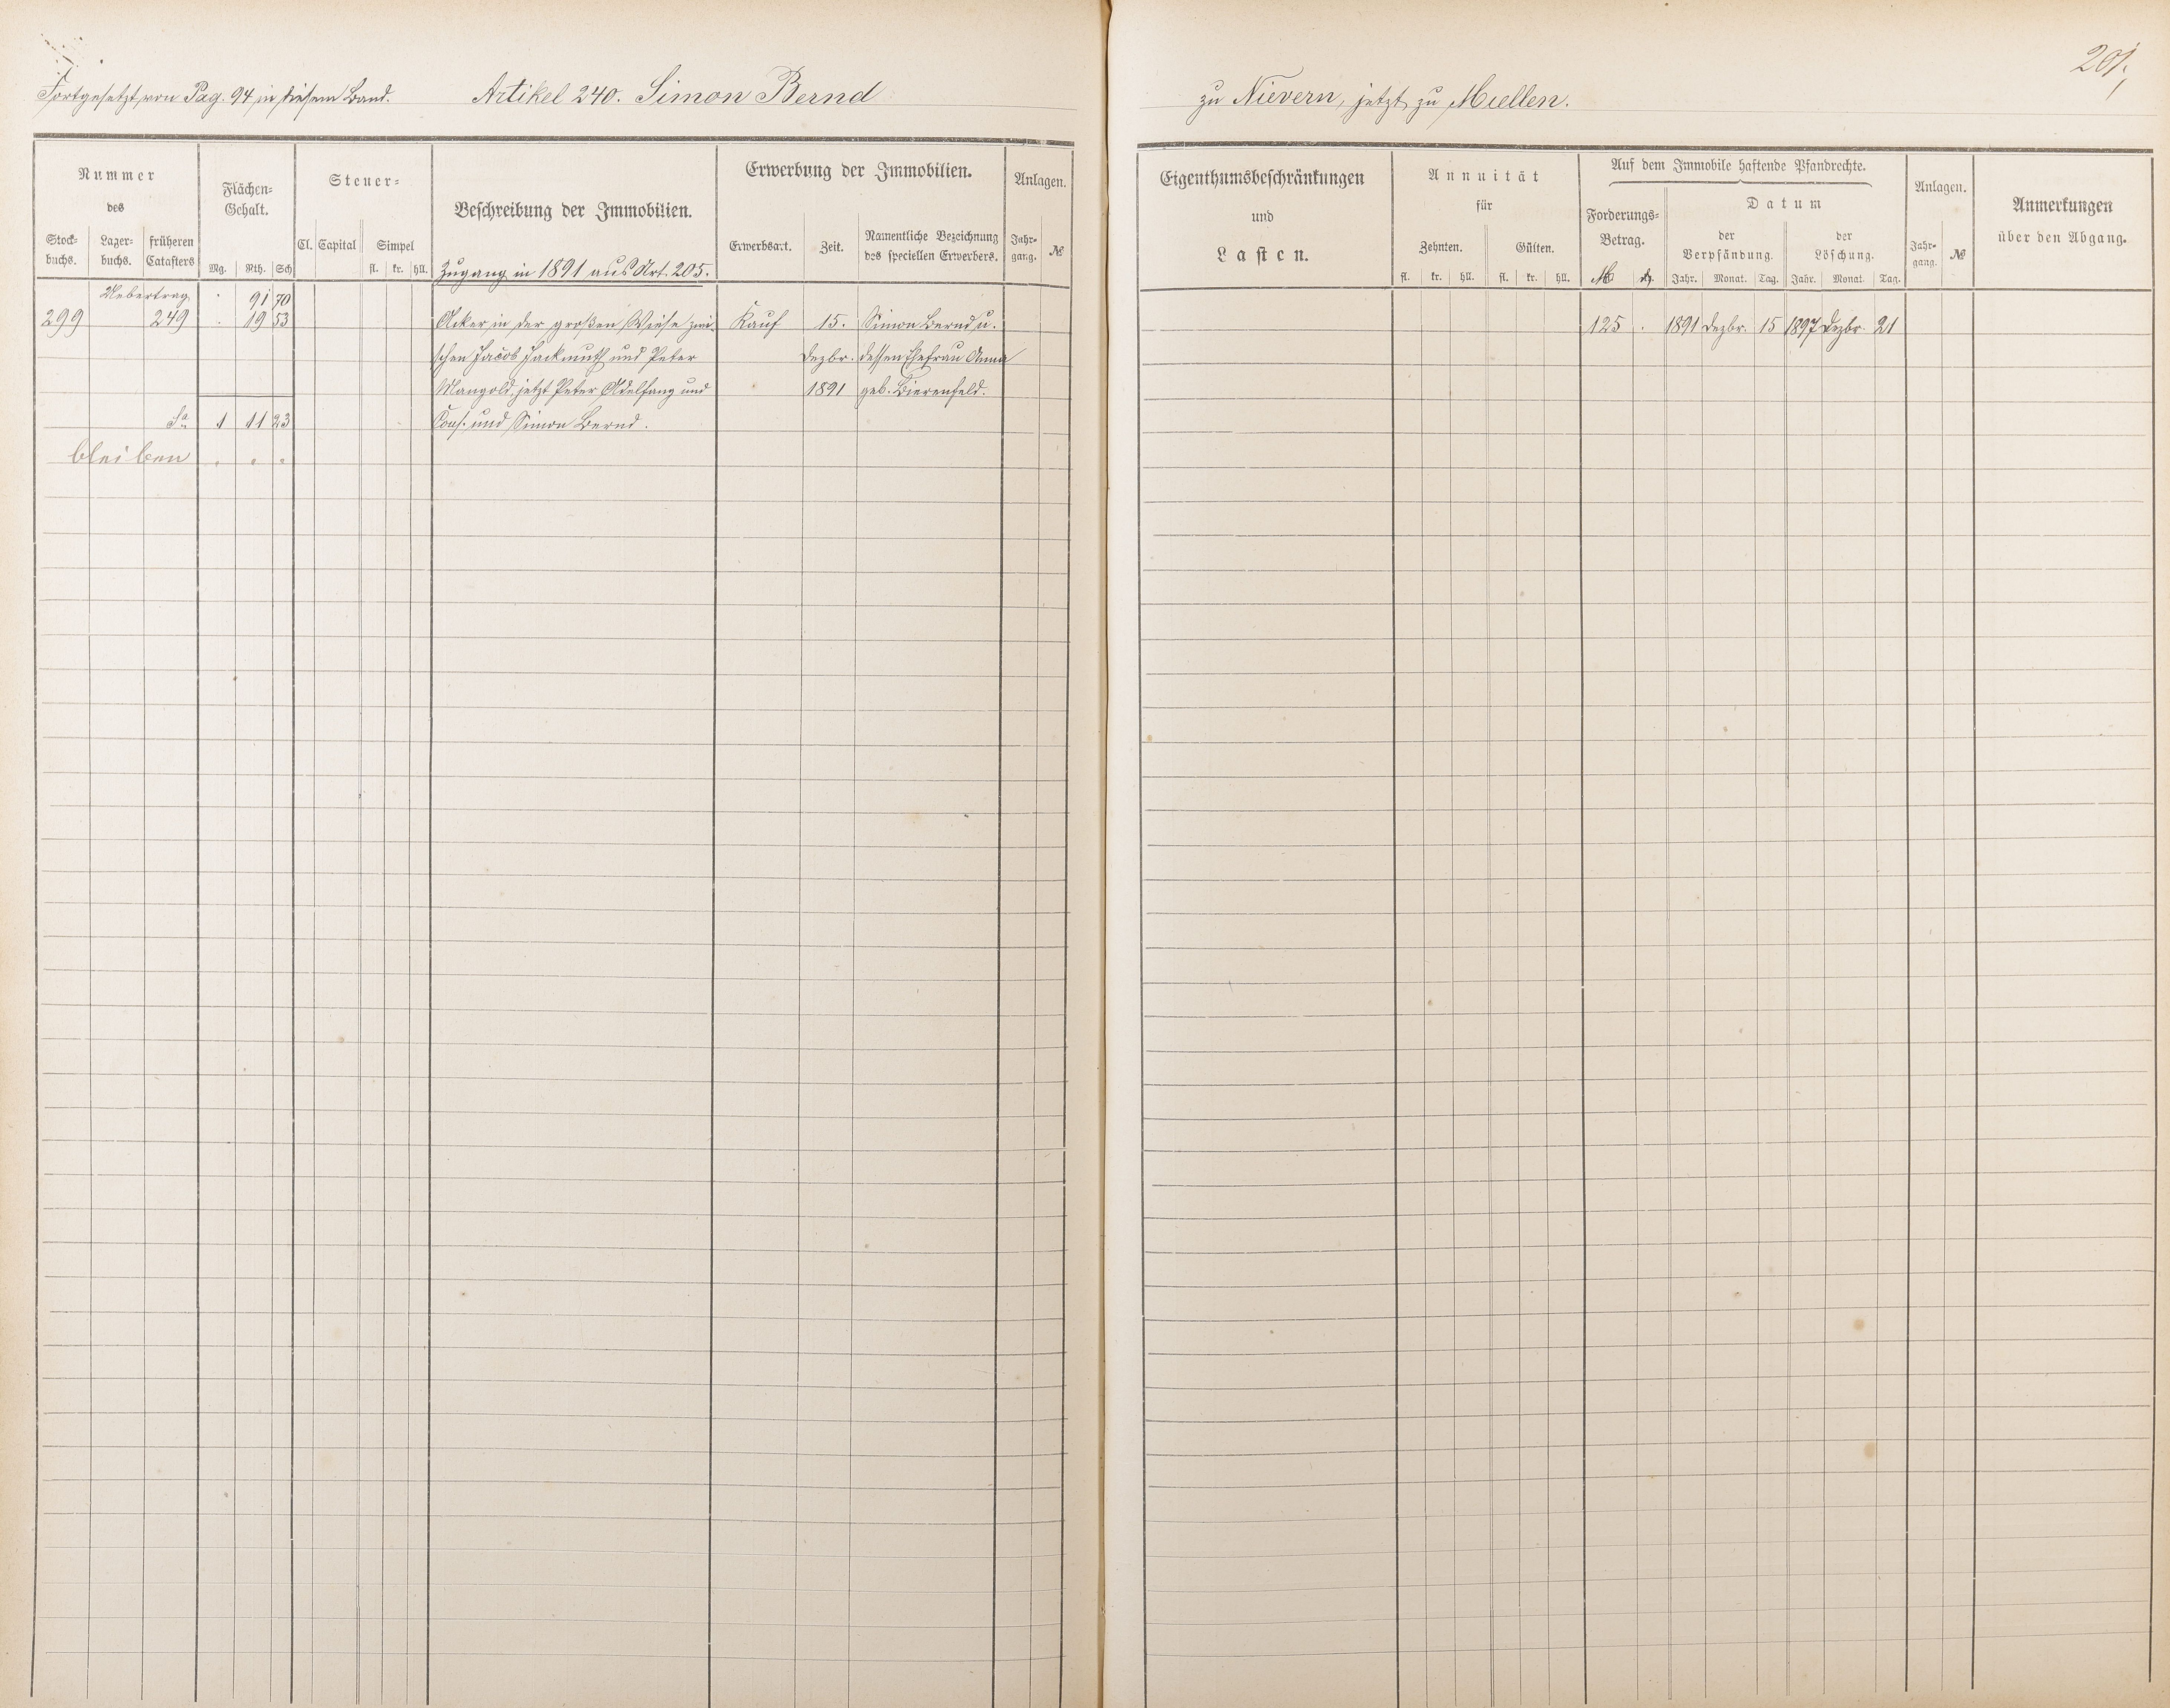 201.
Fortgesetzt von Pag. 94 in diesem Band. Artikel 240. Simon Bernd zu Nievern, jetzt zu Miellen.
Nummer
des
Stock-
buchs.
Lager-
buchs.
früheren
Catasters
Flächen-
Gehalt.
Mg. Rth. Sch
Steuer-
Cl. Capital Simpel
fl. kr. hll.
Beschreibung der Immobilien.
Zugang in 1891 aus Art. 205.
Erwerbung der Immobilien.
Erwerbsart. Zeit.
Namentliche Bezeichnung
des speciellen Erwerbers.
Anlagen.
Jahr-
gang.
№
Eigenthumsbeschränkungen
und
Lasten.
Annuität
für
Zehnten. Gülten.
fl. kr. hll. fl. kr. hll.
Auf dem Immobile haftende Pfandrechte.
Forderungs-
Betrag.
M. ₰.
Datum
der
Verpfändung.
Jahr. Monat. Tag.
der
Löschung.
Jahr. Monat. Tag.
Anlagen.
Jahr-
gang.
№
Anmerkungen
über den Abgang.
Uebertrag . 91 70
299 249 . 19 53 Acker in der großen Wiese zwi- Kauf 15. Simon Bernd u. 125 . 1891 Dezbr. 15 1897 Dezbr. 21
schen Jacob Jackmuth und Peter Dezbr. dessen Ehefrau Anna
Mangold, jetzt Peter Adelfang und 1891 geb. Bierenfeld.
Sa 1 11 23 Cons. und Simon Bernd.
bleiben . . .